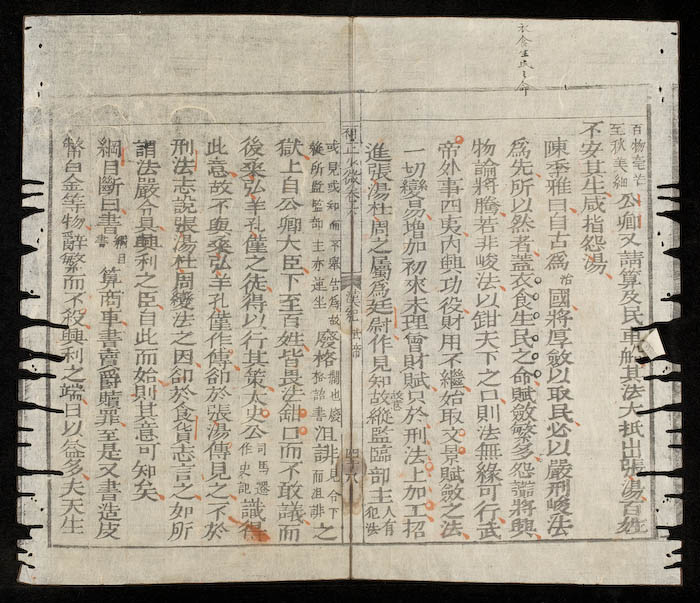 衣食生民之命
百物毫芒至秋美細公卿又請算及民車船其法大抵出張湯百姓
不安其生咸指怨湯
陳季雅曰自古爲治國將厚斂以取民必以嚴刑峻法
爲先所以然者蓋衣食生民之命賦斂繁多怨讟將興
物論將騰若非峻法以鉗天下之口則法無緣可行武
帝外事四夷內興功役財用不繼始取文景賦斂之法
一切變易增加初來未理會財賦只於刑法上加工招
進張湯杜周之屬爲廷尉作見知故縱監臨部主人有犯法
卷六 漢紀 武帝 四十八
或見或知而不舉告爲故縱所監臨部主亦連坐廢格閣也廢格詔書沮誹見令下而沮誹之
獄上自公卿大臣下至百姓皆畏法鉗口而不敢議而
後桑弘羊孔僅之徒得以行其策太史公司馬遷作史記識得
此意故不與桑弘羊孔僅作傳卻於張湯傳見之不於
刑法志說張湯杜周變法之因卻於食貨志言之如所
謂法嚴令具興利之臣自此而始則其意可知矣
綱目斷曰書綱目書算商車書賣爵贖罪至是又書造皮
幣白金等物辭繁而不殺興利之端日以益多夫天生